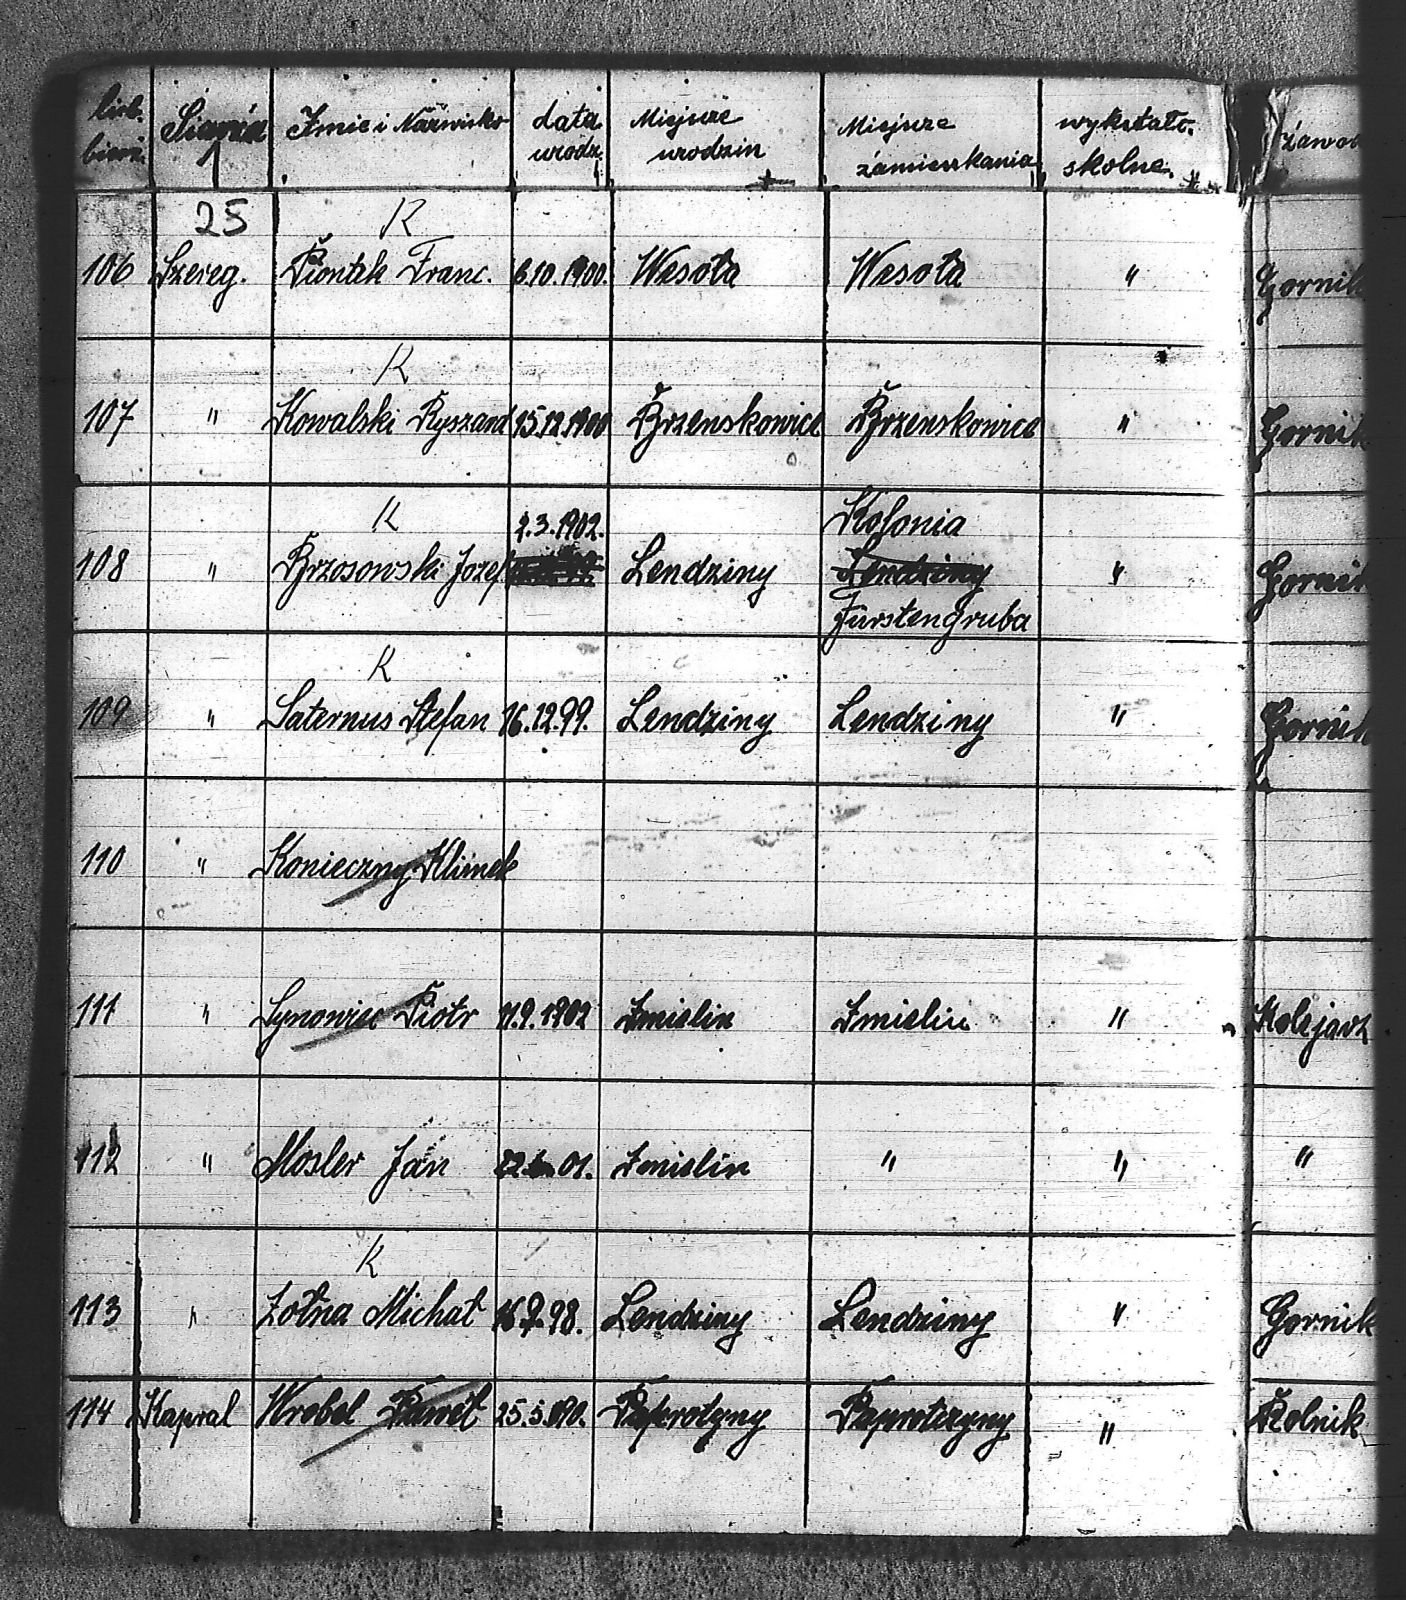 licb. bież. Imię i Nazwisko data urodz. Miejsze urodzin Miejsze zamieszkania wykształc. skolne. zawod
25 K
106 Szereg. Piontek Franc. 6.10.1900. Wesoła Wesoła " Gornik
K
107 " Kowalski Ryszard 15.12.1900 Brzenskowice Brzenskowice " Gornik
K 2.3.1902. Kolonia
108 " Brzosowski Jozef Lendziny Lendziny " Gornik
Fürstengruba
K
109 " Saternus Stefan 16.12.99. Lendziny Lendziny " Gornik
110 " Konieczny Klimek
111 " Synowiec Piotr 11.9.1902 Imielin Imielin " Kolejarz
112 " Mosler Jan 01. Imielin " " "
K
113 " Żołna Michał 98. Lendziny Lendziny " Gornik
114 Kapral Wrobel Paweł Paprotyny Paprotczyny " Rolnik